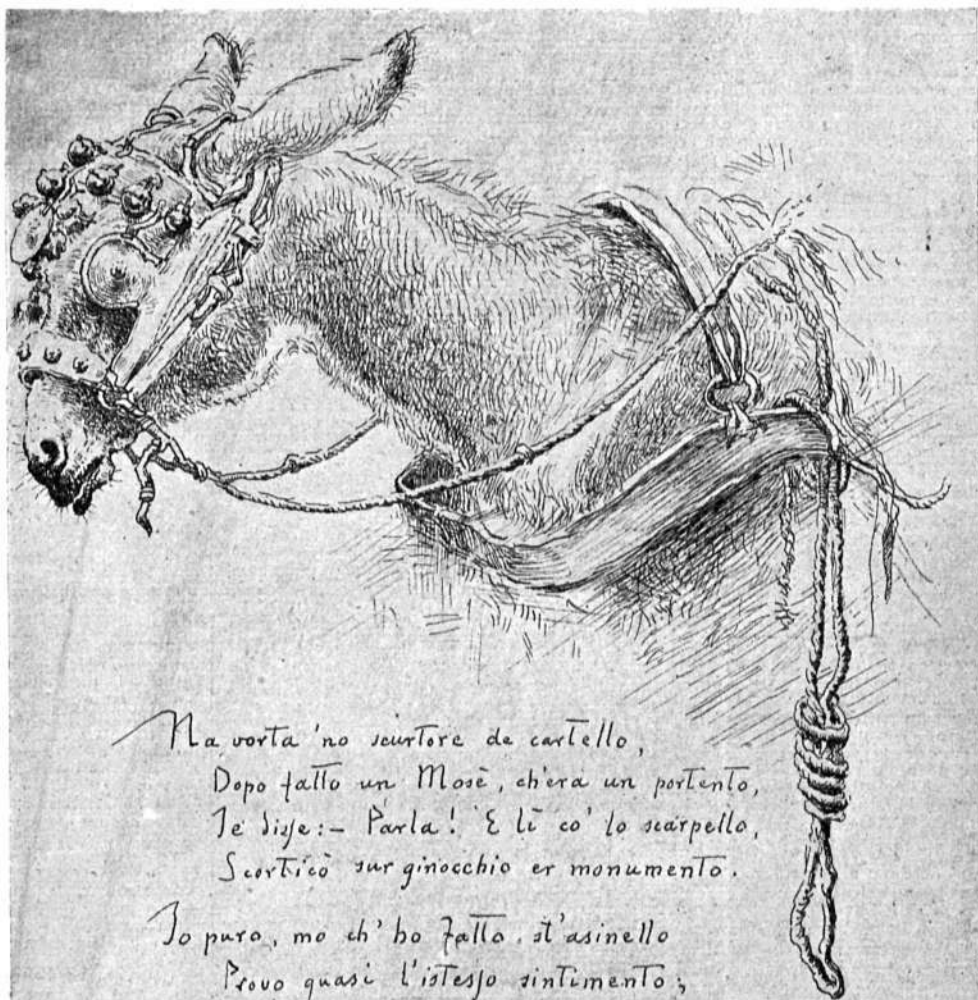 Na vorta 'no scurtore de cartello,
Dopo fatto un Mosè, ch'era un portento,
Je disse:- Parla! E lì co' lo scarpello,
Scorticò sur ginocchio er monumento.
Io puro, mo ch' ho fatto st'asinello
Provo quasi l'istesso sintimento;